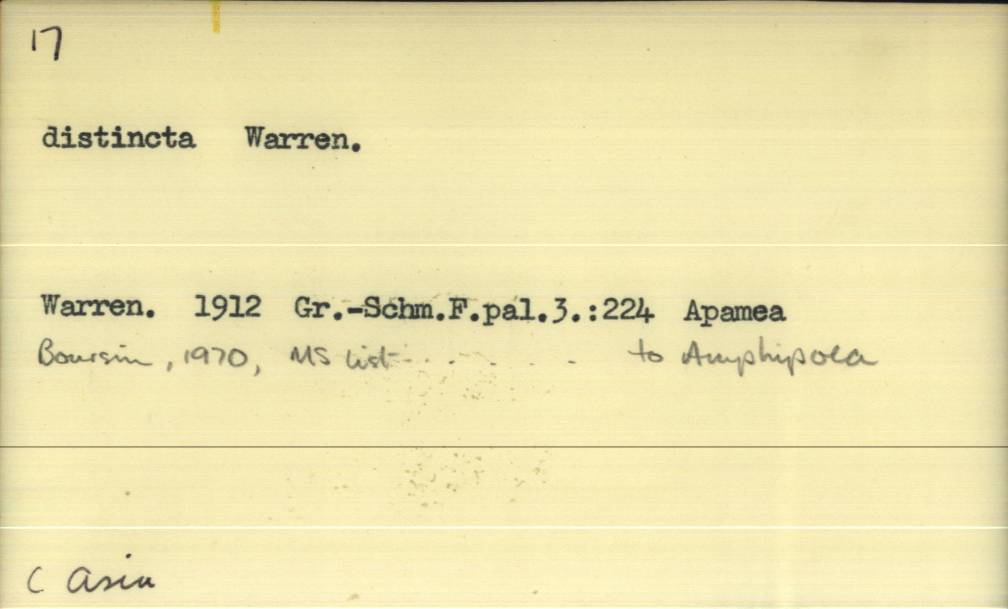 17
distincta Warren.
Warren. 1912 Gr.-Schm.F.pal.3.:224 Apamea
Boursin, 1970, MS list . . . . . to Amphipoea
C Asia